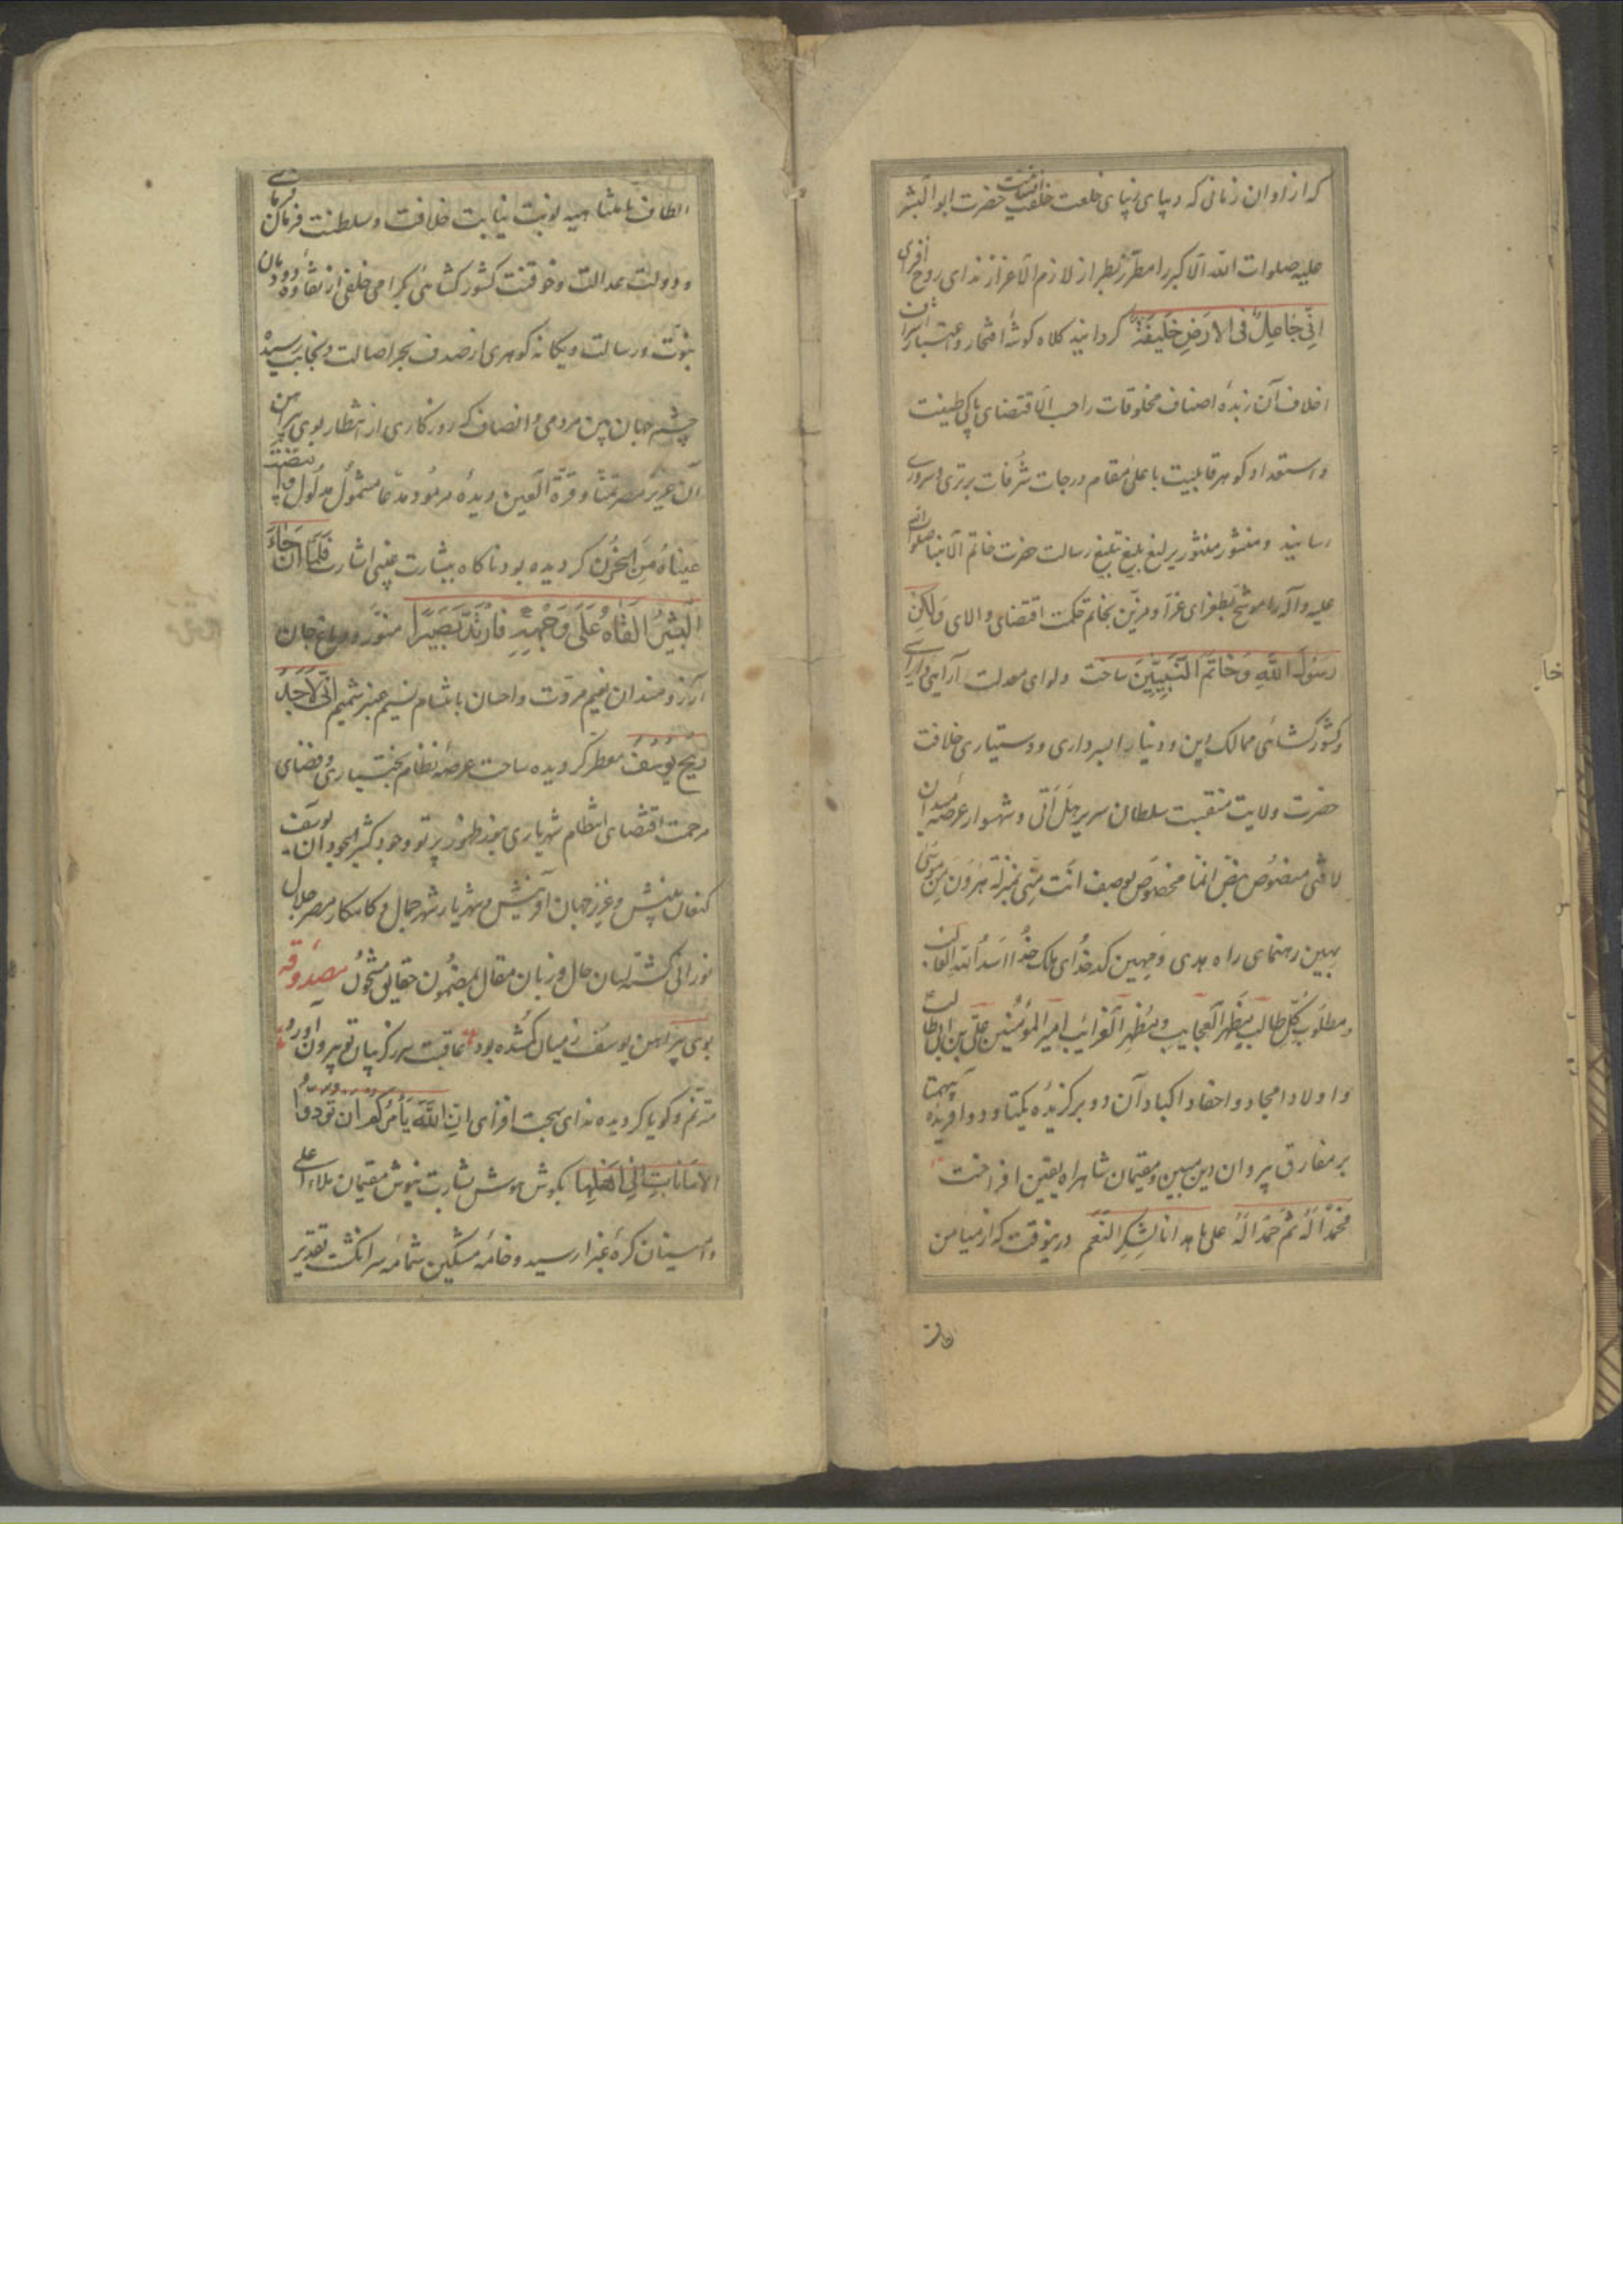 که از اوان زمانی که دیبای زیبای خلعت خلقت حضرت ابو البشر
علیه صلوات الله الاکبر را مطرّز بطراز لازم الاعزاز ندای روح افزای
اِنّی جَاعِلٌ فی الارَضِ خَلیفَة گردانیده کلاه گوشهٔ افتخار و اعتبار اشراف
اخلاف آن زبدهٔ اصناف مخلوقات را حسب الاقتضای پاکی طینت
و استعداد گوهر قابلیت باعلی مقام درجات شرفات برتری و سروری
رسانید و منشور یرلیغ بلیغ تبلیغ رسالت حضرت خاتم الانبیا صلوات الله
علیه و آله را موشح بطغرای غرّا و مزیّن بخاتم حکمت اقتضای والای وَلکِن
رَسُولَ اللهِ وَ خَاتَمَ النَّبِیّینَ ساخت و لوای معدلت آرایی و دارایی
و کشور گشائی ممالک دین و دنیا را بسرداری و دستیاری خلافت
حضرت ولایت منقبت سلطان سریر هَل اَتی و شهسوار عرصه میدان
لا فتی منصوص بنص انما مخصوص بوصف انت منّی بمنزلة هرون من موسی
بهین رهنمای راه هدی و مهین کدخدای ملک خدا اسد الله الغالب
و مطلوب کُلّ طالب مظهر العجایب و مُظهِر الغرائب امیر المؤمنین علی بن ابی طالب
و اولاد امجاد و احفاد اکباد آن دو برگزیده یکتا و دو آفریده بیهمتا
بر مفارق پیروان دین مبین و مقیمان شاهراه یقین افراخت
فحمدًا لَهُ ثم حَمدًا لَهُ علی ما هدانا لِشکرِ النّعَم درینوقت که از میامن
الطاف نامتناهیه نوبت نیابت خلافت و سلطنت و فرمان فرمایی
و دولت عدالت و کشور گشائی بگرامی خلفی از نقاوهٔ دودمان
نبوّت و رسالت و یگانه گوهری از صدف بحر اصالت و نجابت رسیده
چشم جهان بین مردمی و انصاف که روزگاری از انتظار بوی پیراهن
آن عزیز مصر تمنّا و قرّة العین دیدهٔ مدّعا مشمول مدلول وابیضّت
عیناهُ مِنَ الحُزن گردیده بود ناگاه ببشارت اشارت فَلَمّا اَن جَاءَ
البَشیرُ اَلقاهُ عَلی وَجهِهِ فَارتَدَّ بَصیرًا منوّر و دماغ جان
آرزومندان نعیم مروّت و احسان باستشمام نسیم عنبر شمیم اِنّی لَاَجِدُ
ریحَ یُوسُفَ معطّر گردیده ساحت عرصهٔ نظام بختیاری و فضای
مرحمت اقتضای انتظام شهریاری بنور ظهور پرتو وجود کثیر الجود آن یوسف
کنعان بینش و عزیز جهان آفرینش و شهریار شهر جمال و کامکار مصر جلال
نورانی گشته لسان حال و زبان مقال بمضمون حقایق مشحون مصدوقه
بوی پیراهن یوسف ز میان گم شده بود عاقبت سر ز گریبان تو بیرون آورد
مترنّم و گویا گردیده ندای بهجت افزای اِنّ اللهَ یَأمُرُکُم اَن تُؤدّوا
الاَمَاناتِ اِلی اَهلِها بگوش هوش بشارت نیوش مقیمان ملاء اعلی
و خامهٔ مشکین شمامه سرانگشت تقدیر